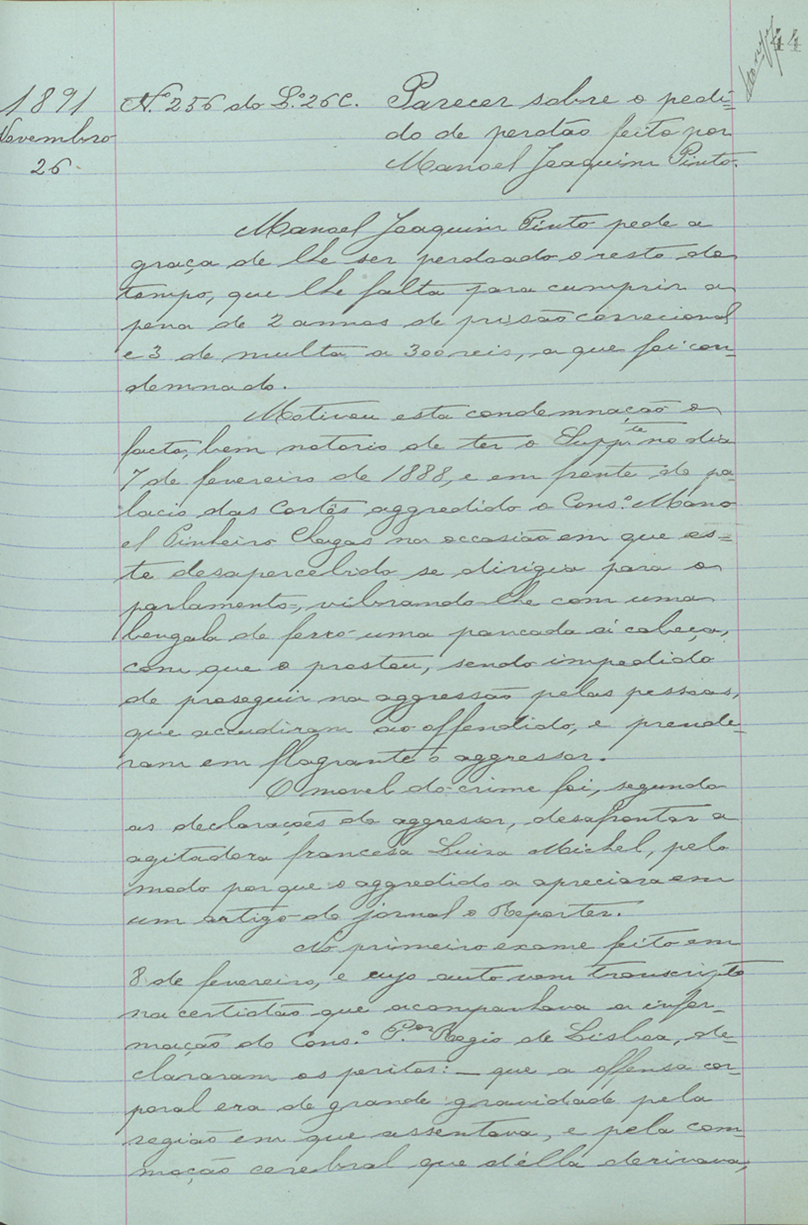 44
1891
Novembro
26
N.º 256 do L.º 26C. Parecer sobre o pedi-
do de perdão feito por
Manoel Joaquim Pinto.
Manoel Joaquim Pinto pede a
graça de lhe ser perdoado o resto do
tempo, que lhe falta para cumprir a
pena de 2 annos de prisão correcional
e 3 de multa a 300 reis, a que foi con-
demnado.
Motivou esta condemnação o
facto, bem notorio de ter o Suppte no dia
7 de fevereiro de 1888, e em frente do pa-
lacio das Cortes aggredido o Cons.º Mano
el Pinheiro Chagas na occasião em que es-
te desapercebido se dirigia para o
parlamento, vibrando-lhe com uma
bengala de ferro uma pancada á cabeça,
com que o prostou, sendo impedido
de proseguir na aggressão pelas pessoas,
que accudiram ao offendido, e prende-
ram em flagrante o aggressor.
O movel do crime foi, segundo
as declarações do aggressor, desafrontar a
agitadora francesa Luisa Michel, pelo
modo porque o aggredido a apreciara em
um artigo do jornal o Reporter.
No primeiro exame feito em
8 de fevereiro, e cujo auto vem transcripto
na certidão que acompanhava a infor-
mação do Cons.º P.or Regio de Lisboa, de-
clararam os peritos: — que a offensa cor-
poral era de grande gravidade pela
região em que assentava, e pela com-
moção cerebral que d'élla derivava,